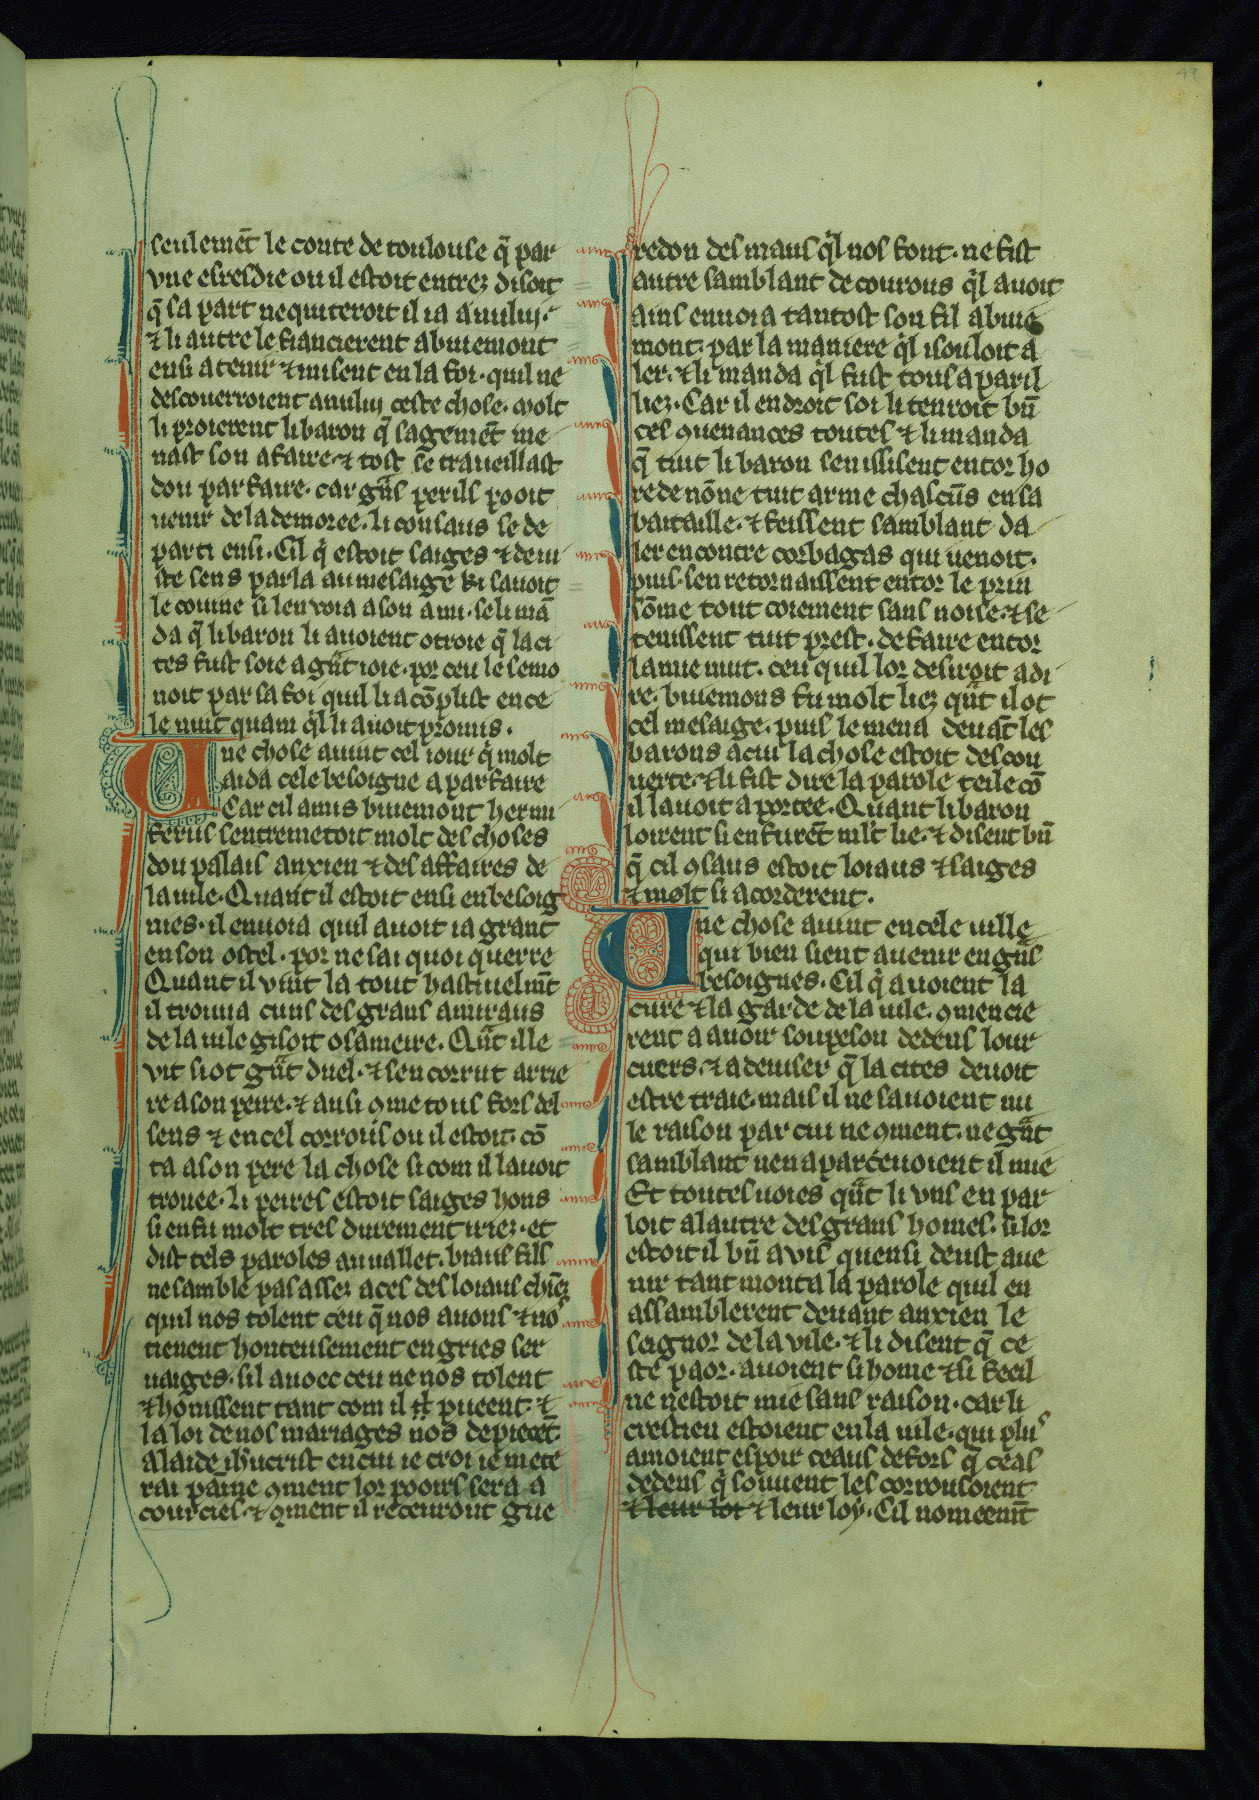 49
seulemēt le conte de toulouse q̄ par
vne esresdie ou il estoit entrez disoit
q̄ sa part ne quiteroit il ia a nului.
⁊ li autre le fiancierent a buiemont
ensi a tenir ⁊ misent en la foi. quil ne
descouerroient a nului ceste chose. molt
li proierent li baron q̄ sagemēt me
nast son afaire. ⁊ tost se traueillast
dou parfaire. car gᵃns perils pooit
uenir de la demoree. li consaus se de
parti ensi. Cil q̄ estoit saiges ⁊ de iu
ste sens parla au mesaige ki sauoit
le couine si lenvoia a son ami. se li mā
da q̄ li baron li auoient otroie q̄ la ci
tes fust soie a gᵃnt ioie. por ceu le semo
noit par sa foi quil li acōplist en ce
le nuit quam q̄l li auoit promis.
Une chose auint cel iour q̄ molt
aida cele besoigne a parfaire
Car cil amis buiemont hermi
ferius sentremetoit molt des choses
dou palais anxien ⁊ des affaires de
la uile. Quant il estoit ensi enbesoig
nies. il enuoia quil auoit ia grant
en son ostel. por ne sai quoi querre
Quant il vint la tout hastiuelmt̄
il trouua cuns des grans amiraus
de la uile gisoit o sa meire. Qᵃnt ille
vit si ot gᵃnt duel. ⁊ sen corrut arrie
re a son peire. ⁊ ausi ꝯme tous fors del
sens ⁊ en cel corrous ou il estoit. cō
ta a son pere la chose si com il lauoit
trouee. li peires estoit saiges hons
si en fu molt tres durement iriez. et
dist tels paroles au uallet. biaus fils
ne samble pas assez a ces desloiaus chiēz
quil nos tolent ceu q̄ nos auons ⁊ nos
tienent honteusement en gries ser
uaiges. sil auoec ceu ne nos tolent
⁊ honissent tant com il pueent. ⁊
la loi de nos mariages nos depiecēt
a laide ihūcrist en cui ie croi ie mete
rai paine ꝯment lor pooirs sera a
courcies. ⁊ ꝯment il receuront gue
redon des maus q̄l nos font. ne fist
autre samblant de courous q̄l auoit
ains enuoia tantost son fil a buie
mont. par la maniere q̄l i souloit a
ler. ⁊ li manda q̄l fust tous a paril
liez. Car il endroit soi li tenroit bn̄
ces ꝯuenances toutes ⁊ li manda
q̄ tuit li baron senississent entor ho
re de nōne tuit arme chascūs en sa
bataille. ⁊ feissent samblant da
ler encontre corbagas qui uenoit.
puis. sen retornaissent entor le prin
sōme tout coiement sans noise. ⁊ se
tenissent tuit prest. de faire entor
la mie nuit. ceu quil lor desiroit a di
re. buiemons fu molt liez qᵃnt il ot
cel mesaige. puis le mena deuāt les
barons a cui la chose estoit descou
uerte. ⁊ li fist dire la parole teile cō
il lauoit aportee. Quant li baron
loirent si en furēt ml̄t lie. ⁊ disent bn̄
q̄ cil ꝯsaus estoit loiaus ⁊ saiges
⁊ molt si acorderent.
Une chose auint en cele uille
qui bien sient auenir en gᵃns
besoignes. Cil q̄ auoient la
cure ⁊ la garde de la uile. ꝯmencie
rent a auoir soupeson dedens lour
cuers. ⁊ a deuiser q̄ la cites deuoit
estre traie. mais il ne sauoient nu
le raison par cui ne ꝯment. ne gᵃnt
samblant nen aparceuoient il mie
Et toutes uoies qᵃnt li vns en par
loit a lautre des grans homes. si lor
estoit il bn̄ a vis quensi deust aue
nir tant monta la parole quil en
assamblerent deuant anxien le
seignor de la vile. ⁊ li disent q̄ ce
ste paor. auoient si home ⁊ si
ne nestoit mie sans raison. car li
crestien estoient en la uile. qui plus
amoient espoir ceaus defors q̄ ceas
dedens q̄ souuent les corrousoient
⁊ leur loi ⁊ leur loy. Cil nomeemt̄